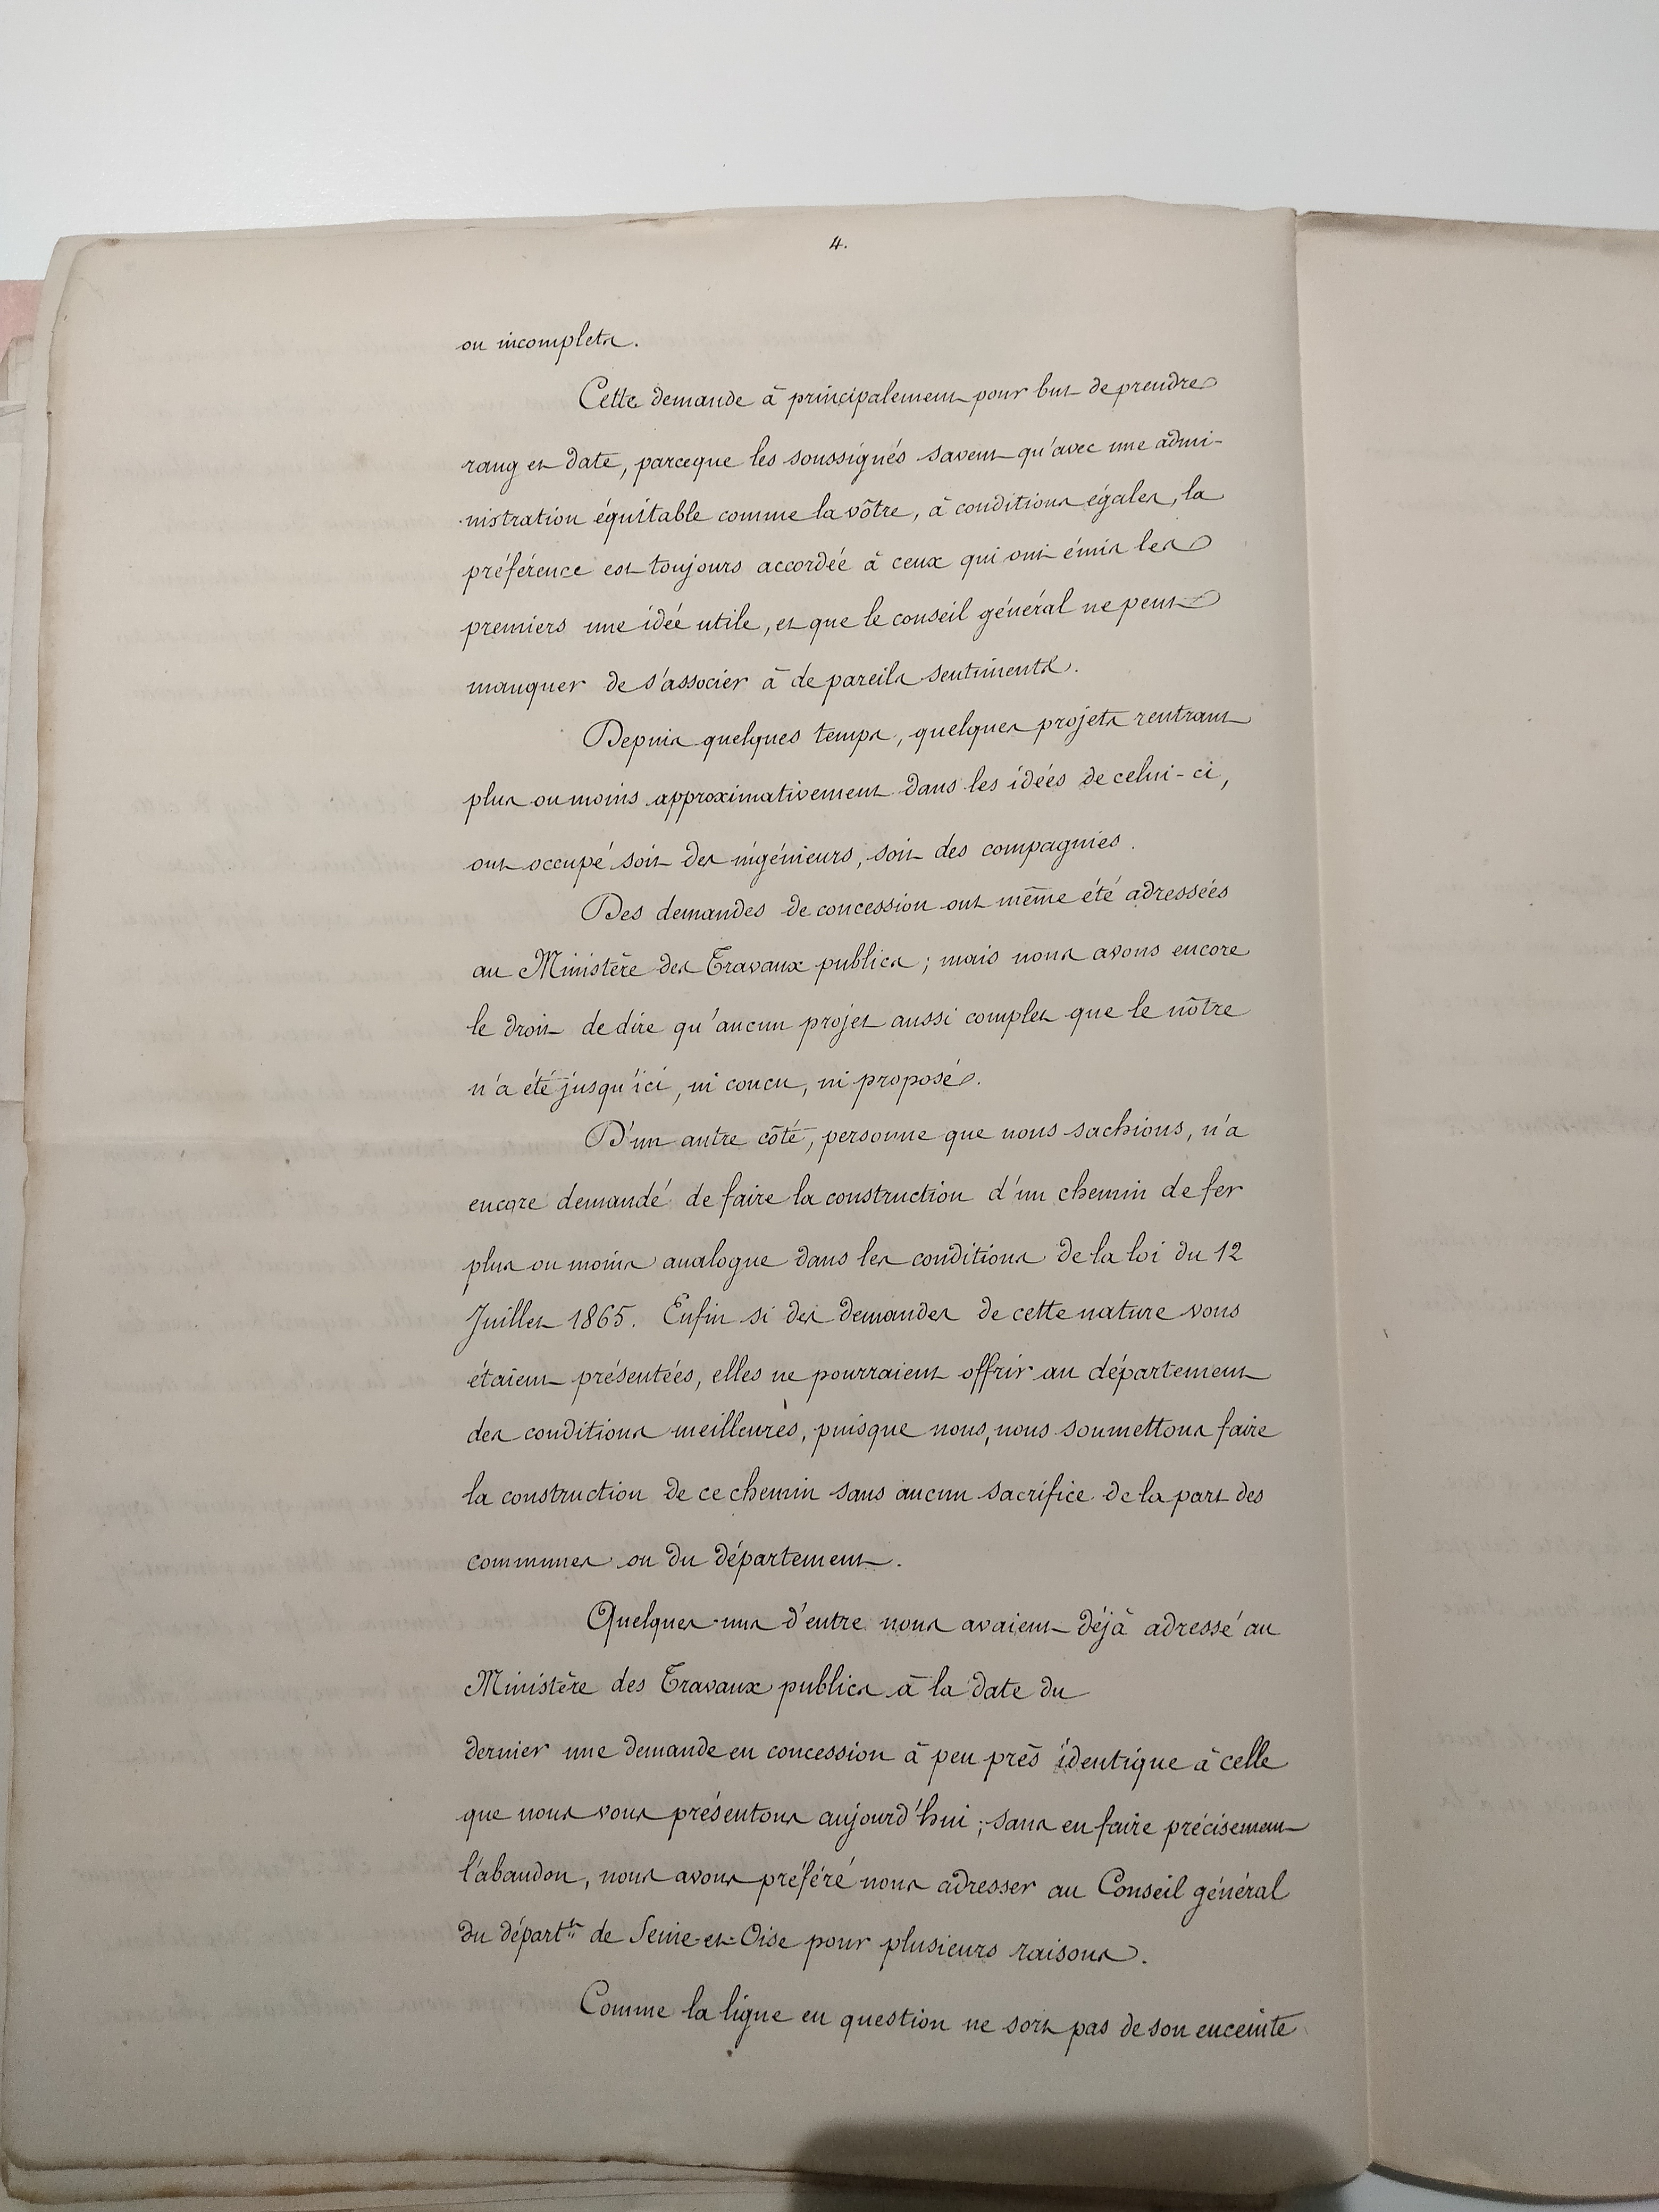 4.
ou incomplets.
Cette demande à principalement pour but de prendre
rang et date, parceque les soussignés savent qu'avec une admi-
nistration équitable comme la vôtre, à conditions égales, la
préférence est toujours accordée à ceux qui ont émis les
premiers une idée utile, et que le conseil général ne peut
manquer de s'associer à de pareils sentiments.
Depuis quelques temps, quelques projets rentrant
plus ou moins approximativement dans les idées de celui-ci,
ont occupé soit des ingénieurs, soit des compagnies.
Des demandes de concession ont même été adressées
au Ministère des Travaux publics ; mais nous avons encore
le droit de dire qu'aucun projet aussi complet que le nôtre
n'a été jusqu'ici, ni concu, ni proposé.
D'un autre côté, personne que nous sachions, n'a
encore demandé de faire la construction d'un chemin de fer
plus ou moins analogue dans les conditions de la loi du 12
Juillet 1865. Enfin si des demandes de cette nature vous
étaient présentées, elles ne pourraient offrir au département
des conditions meilleures, puisque nous, nous soumettons faire
la construction de ce chemin sans aucun sacrifice de la part des
communes ou du département.
Quelques-uns d'entre nous avaient déjà adressé au
Ministère des Travaux publics à la date du
dernier une demande en concession à peu près identique à celle
que nous vous présentons aujourd'hui ; sans en faire précisement
l'abandon, nous avons préféré nous adresser au Conseil général
du départ.t de Seine-et-Oise pour plusieurs raisons.
Comme la ligne en question ne sort pas de son enceinte